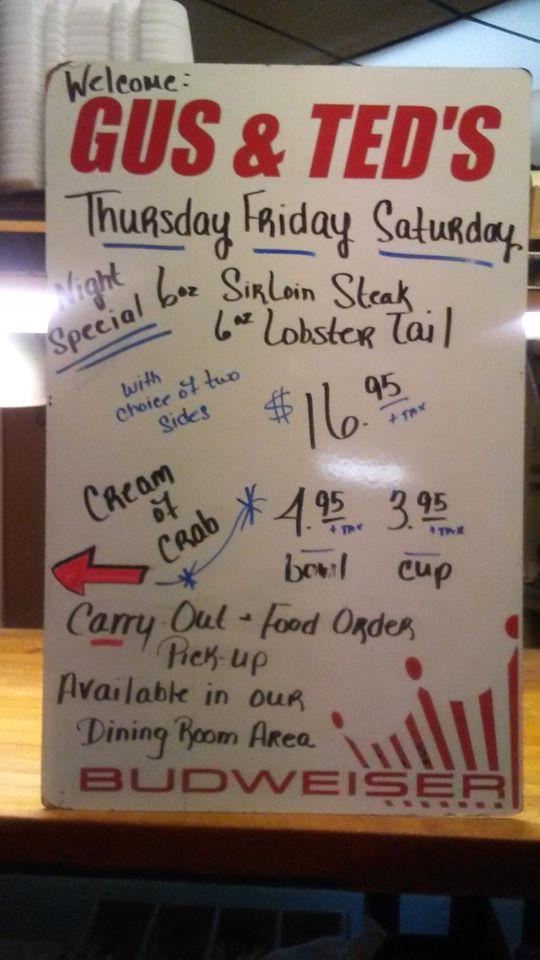 Welcome:
GUS & TED'S
Thursday Friday Saturday
Night Special
6oz Sirloin Steak
6oz Lobster Tail
with choice of two sides
$16.95 + TAX
Cream of Crab
4.95 + TAX 3.95 + TAX
bowl cup
Carry Out - Food Order
Pick-up
Available in our
Dining Room Area
BUDWEISER